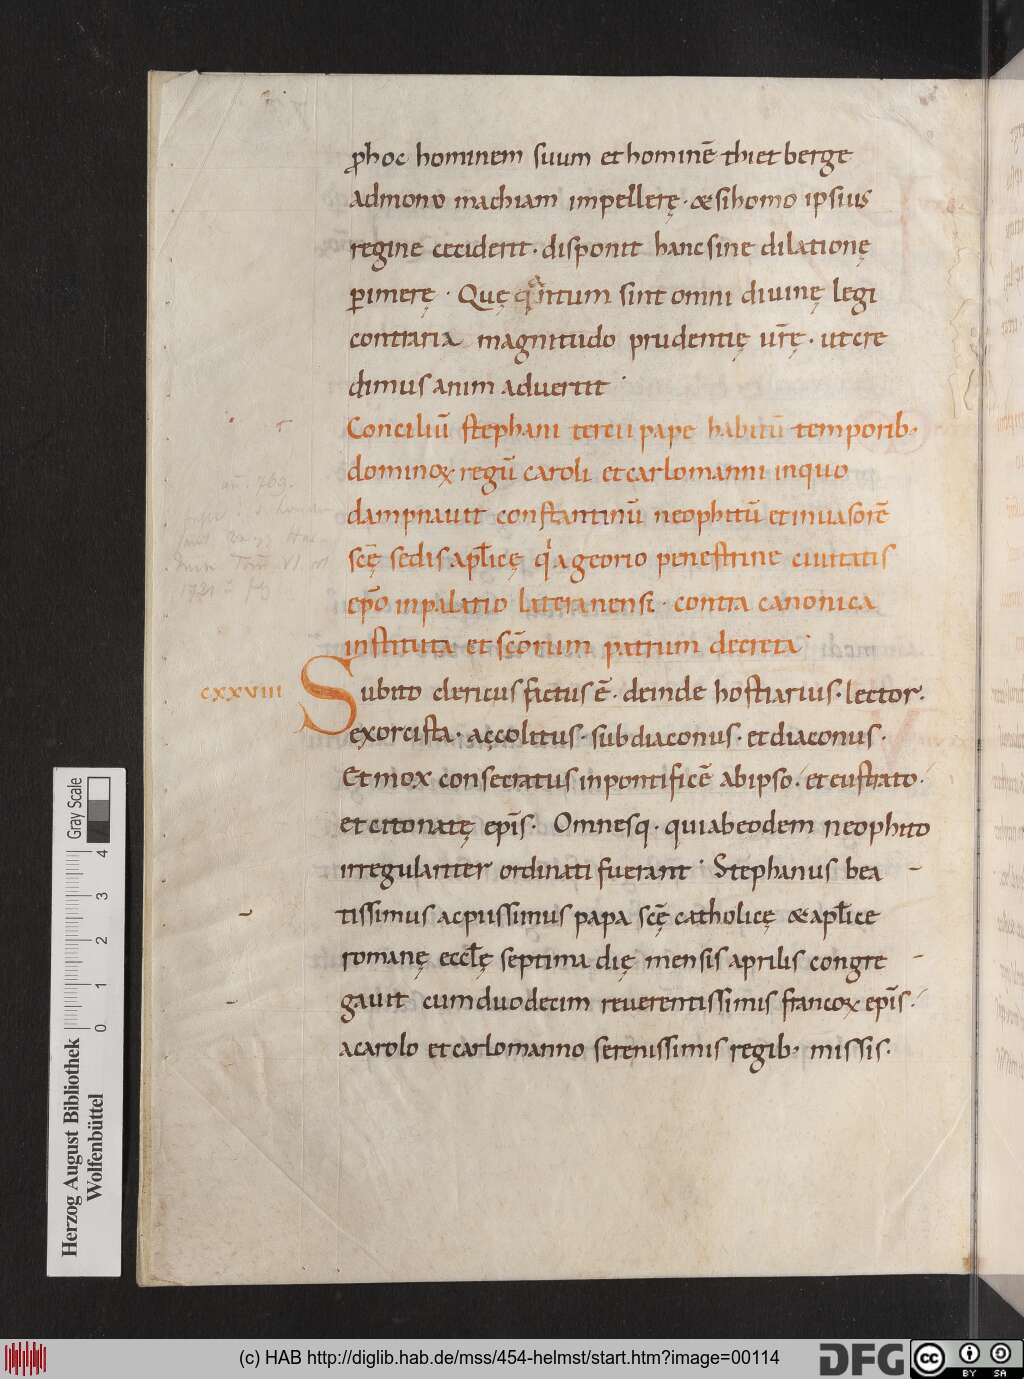 ꝓhoc hominem suum et hominē thietberge
admonomachiam impellerę · & si homo ipsius
regine ceciderit · disponit hanc sine dilationę
ꝑimerę · Quę qͣntum sint omni diuinę legi
contraria magnitudo prudentię ur̄ę · ut cre
dimus animaduertit ·
Conciliū stephani tercii pape habitū temporib·
dominoꝝ regū caroli et carlomanni in quo
dampnauit constantinū neophitū et inuasorē
scę̄ sedis apl̄icę qͥ a georio penestrine ciuitatis
ep̄o in palatio lateranensi · contra canonica
instituta et sc̄orum patrum decreta ·
cxxviii Subito clericus factus ē · deinde hostiarius · lector ·
exorcista · accolitus · subdiaconus · et diaconus ·
Et mox consecratus in pontificē ab ipso · et eustrato ·
et citonatę ep̄is · Omnesq · qui ab eodem neophito
irregulariter ordinati fuerant · Stephanus bea
tissimus ac piissimus papa scę̄ catholicę & apl̄ice
romanę eccl̄ę septima dię mensis aprilis congre
gauit cum duodecim reuerentissimis francoꝝ ep̄is ·
a carolo et carlomanno serenissimis regib· missis ·
Gray Scale
4
3
2
1
0
Herzog August Bibliothek
Wolfenbüttel
(c) HAB http://diglib.hab.de/mss/454-helmst/start.htm?image=00114
DFG
cc
BY SA